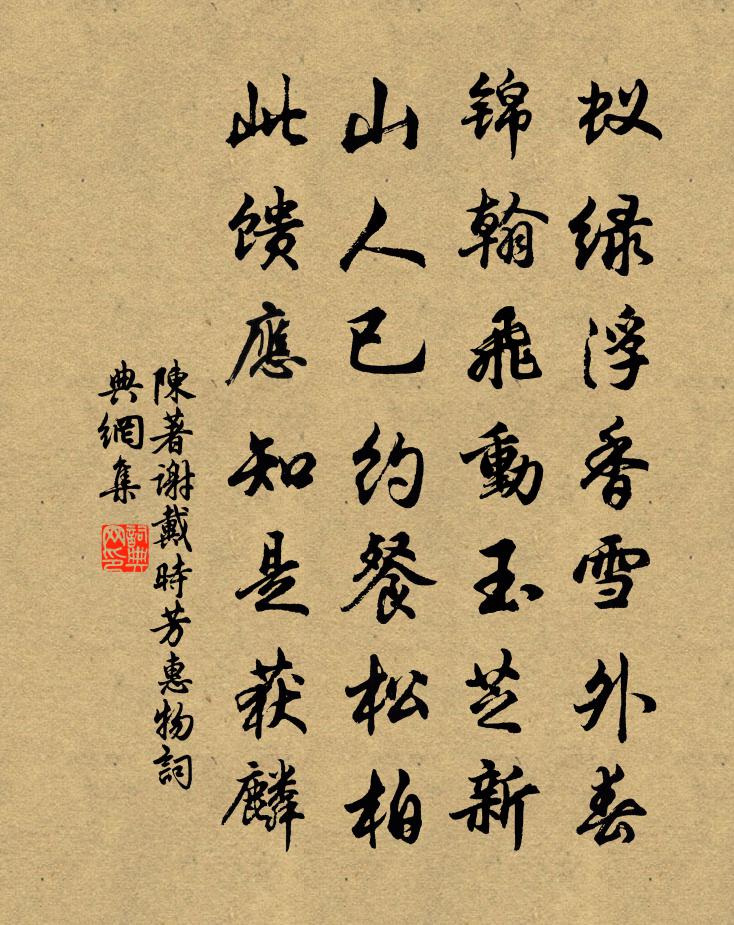 蚁绿浮香雪外春
锦翰飛動玉芝新
山人已约餐松柏
此馈應知是获麟
陳著谢戴時芳惠物詞
典網集
詞典
网印